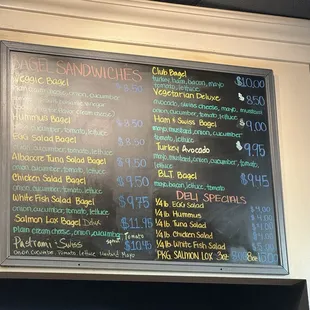 BAGEL SANDWICHES
Veggie Bagel $8.50
onion, cucumber
tomato, lettuce
Hummus Bagel
onion, cucumber, tomato, lettuce
Egg Salad Bagel
onion, cucumber, tomato, lettuce
Albacore Tuna Salad Bagel $9.50
onion, cucumber, tomato, lettuce
Chicken Salad Bagel $9.50
onion, cucumber, tomato, lettuce
White Fish Salad Bagel $9.75
onion, cucumber, tomato, lettuce
Salmon Lox Bagel Delux $11.95
Plain cream cheese, onion, cucumber
Tomato
Pastrami - Swiss $10.95
Onion Cucumber Tomato Lettuce Mustard Mayo
Club Bagel $10.00
turkey, ham, bacon, mayo
tomato, lettuce
Vegetarian Deluxe $8.50
avocado, swiss cheese, mayo, mustard
onion, cucumber, tomato, lettuce
Ham & Swiss Bagel $9.00
mayo, mustard, onion, cucumber
tomato, lettuce
Turkey Avocado $9.95
mayo, mustard, onion, cucumber, tomato,
lettuce
B.L.T. Bagel $9.45
mayo, bacon, tomato, lettuce
DELI SPECIALS
1/4lb EGG Salad $4.00
1/4lb Hummus $4.00
1/4lb Tuna Salad
1/4lb Chicken Salad
1/4lb White Fish Salad
PKG SALMON LOX 3oz 9.00 8oz 16.00